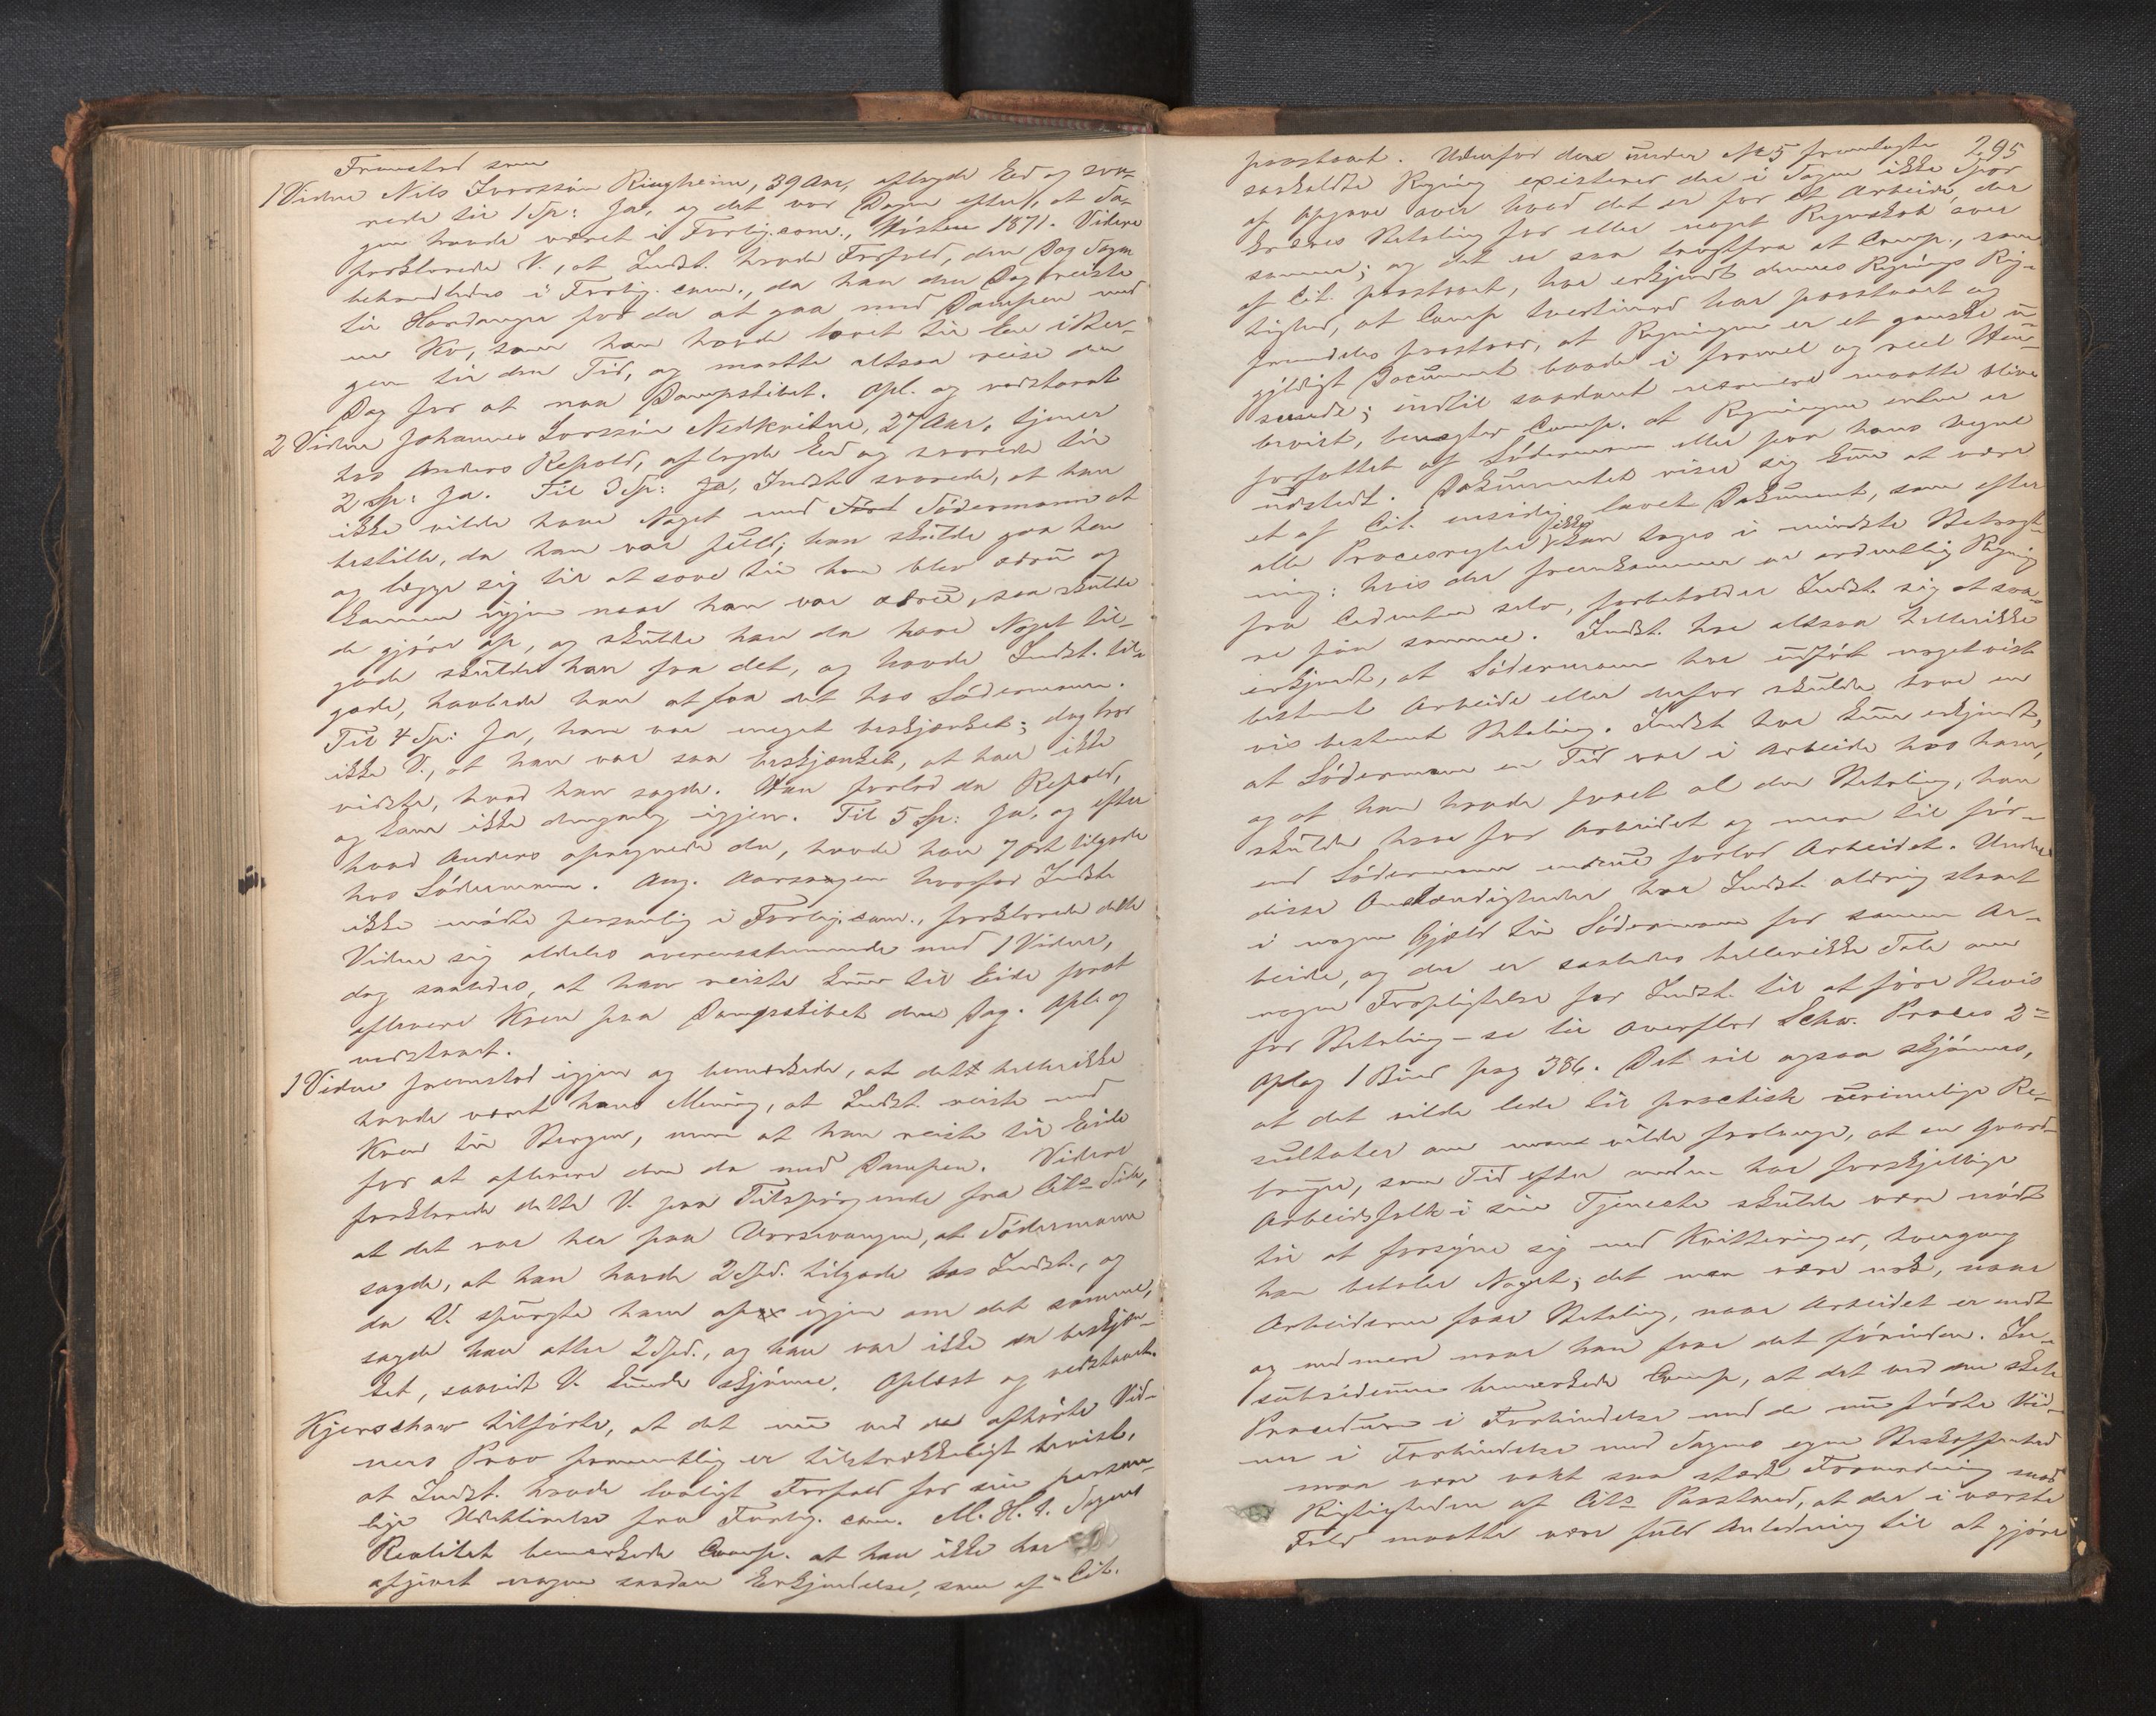 Fremstod som
1 Vidne Nils Ivarssøn Ringheim, 39 Aar, aflagde Ed og sva-
rede til 1 Sp: Ja, og det var Dagen efter, at Sa-
gen havde været i Forlig.com., Høsten 1871. Videre
forklarede V., at Indst. havde Forfald, den Dag Sagen
behandledes i Forlig. com., da han den Dag reiste
til Hardanger for da at gaa med Dampen med
en Ko, som han havde lovet til En i Ber-
gen til den Tid, og maatte altsaa reise den
Dag for at naa Dampskibet. Opl. og vedstaaet
2 Vidne Johannes Ivarssøn Nedkvitne, 27 Aar, tjener
hos Anders Repald, aflagde Ed og svarede til
2 Sp: Ja. Til 3 Sp: Ja, Indst. svarede, at han
ikke vilde have Noget med Södermann at
bestille, da han var fuld; han skulde gaa hen
og lægge sig til at sove til han blev ædru og
komme igjen naar han var ædru, saa skulde
de gjöre op, og skulde han da have Noget til-
gode skulde han faa det, og havde Indst. til-
gode, haabede han at faa det hos Södermann.
Til 4 Sp: Ja, han var meget beskjænket; dog tror
ikke V., at han var saa beskjænket, at han ikke
vidste, hvad han sagde. Han forlod da Repald,
og kom ikke dengang igjen. Til 5 Sp: Ja, og efter
hvad Anders opregnede da, havde han 7 Ort tilgode
hos Södermann. Ang. Aarsagen hvorfor Indst.
ikke mødte personlig i Forlig.com., forklarede dette
Vidne sig aldeles overensstemmende med 1 Vidne,
dog saaledes, at han reiste kun til Eide for at
aflevere Koen paa Dampskibet den Dag. Opl. og
vedstaaet.
1 Vidne fremstod igjen og bemærkede, at dette hellerikke
havde været hans Mening, at Indst. reiste med
Koen til Bergen, men at han reiste til Eide
for at aflevere den da med Dampen. Videre
forklarede dette V. paa Tilspørgende fra Cits Side,
at det var her paa Vossevangen, at Södermann
sagde, at han havde 2 Spd. tilgode hos Indst., og
da V. spurgte ham op igjen om det samme,
sagde han atter 2 Spd., og han var ikke da beskjæn-
ket, saavidt V. kunde skjönne. Oplæst og vedstaaet.
Kjerschow tilförte, at det nu ved de afhörte Vid-
ners Prov formentlig er tilstrækkeligt bevist,
at Indst. havde lovligt Forfald for sin person-
lige Udeblivelse fra Forlig. com. M. H. t. Sagens
Realitet bemærkede Comp. at han ikke har
afgivet nogen saadan Erkjendelse, som af Cit.
295
paastaaet. Udenfor den under No 5 fremlagte
saakaldte Regning existerer der i Sagen ikke Spor
af Opgave over hvad det er for et Arbeide, der
kræves Betaling for eller noget Regnskab over
samme; og det er saa langtfra at Comp., som
af Cit. paastaaet, har erkjendt dennes Regnings Rig-
tighed, at Comp tvertimod har paastaaet og
fremdeles paastaar, at Regningen er et ganske u-
gyldigt Document baade i formel og reel Hen-
seende; indtil saadant nærmere maatte blive
bevist, benægter Comp. at Regningen enten er
forfattet af Södermann eller paa hans Vegne
udstedt. Dokumentet viser sig kun at være
et af Cit. ensidig lavet Dokument, som efter
alle Procesregler ikke kan tages i mindste Betragt-
ning: hvis der fremkommer en ordentlig Regning
fra Cedenten selv, forbeholder Indst. sig at sva-
re paa samme. Indst. har altsaa hellerikke
erkjendt, at Södermann har udført noget vist
bestemt Arbeide eller derfor skulde have en
vis bestemt Betaling. Indst. har kun erkjendt,
at Södermann en Tid var i Arbeide hos ham,
og at han havde faaet al den Betaling, han
skulde have for Arbeidet og mere til för-
end Södermann endnu forlod Arbeidet. Under
disse Omstændigheder har Indst. aldrig staaet
i nogen Gjæld til Södermann for samme Ar-
beide, og der er saaledes hellerikke Tale om
nogen Forpligtelse for Indst. til at före Bevis
for Betaling – se til Overflod Schw. Proces 2=
Oplag 1 Bind pag 386. Det vil ogsaa skjönnes,
at det vilde lede til practisk urimelige Re-
sultater om man vilde forlange, at en Gaard-
bruger, som Tid efter anden har forskjellige
Arbeidsfolk i sin Tjeneste skulde være nödt
til at forsyne sig med Kvitteringer, hvergang
han betaler Noget; det maa være nok, naar
Arbeideren faar Betaling, naar Arbeidet er endt
og end mere naar han faar det förinden. In-
subsidium bemærkede Comp, at det ved den skete
Procedure i Forbindelse med de nu førte Vid-
ner i Forbindelse med Sagens egen Beskaffenhed
maa være vakt saa stærk Formodning mod
Rigtigheden af Cits Paastand, at der i værste
Fald maatte være fuld Anledning til at gjöre